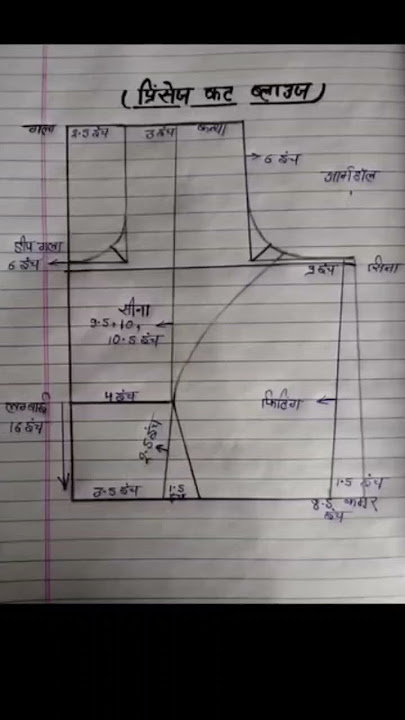 ( प्रिंसेज कट ब्लाउज )
गला 2.5 इंच 3 इंच कन्धा
→ 6 इंच
आर्महोल
डीप गला
6 इंच
9 इंच सीना
सीना
9.5, 10,
10.5 इंच
लम्बाई
16 इंच
4 इंच
फिटिंग
3.5 इंच
1.5
इंच
1.5 इंच
8.5 कमर
इंच